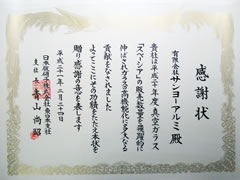 感謝状
有限会社サンヨーアルミ殿
貴社は平成二十年度、真空ガラス
「スペーシア」の販売数量を飛躍的に
伸ばされガラスの高機能化に多大なる
貢献をなされました
よってここにその功績をたたえ本状を
贈り感謝の意を表します
平成二十一年二月二十四日
日本板硝子株式会社東日本支社
支社長 青山尚昭